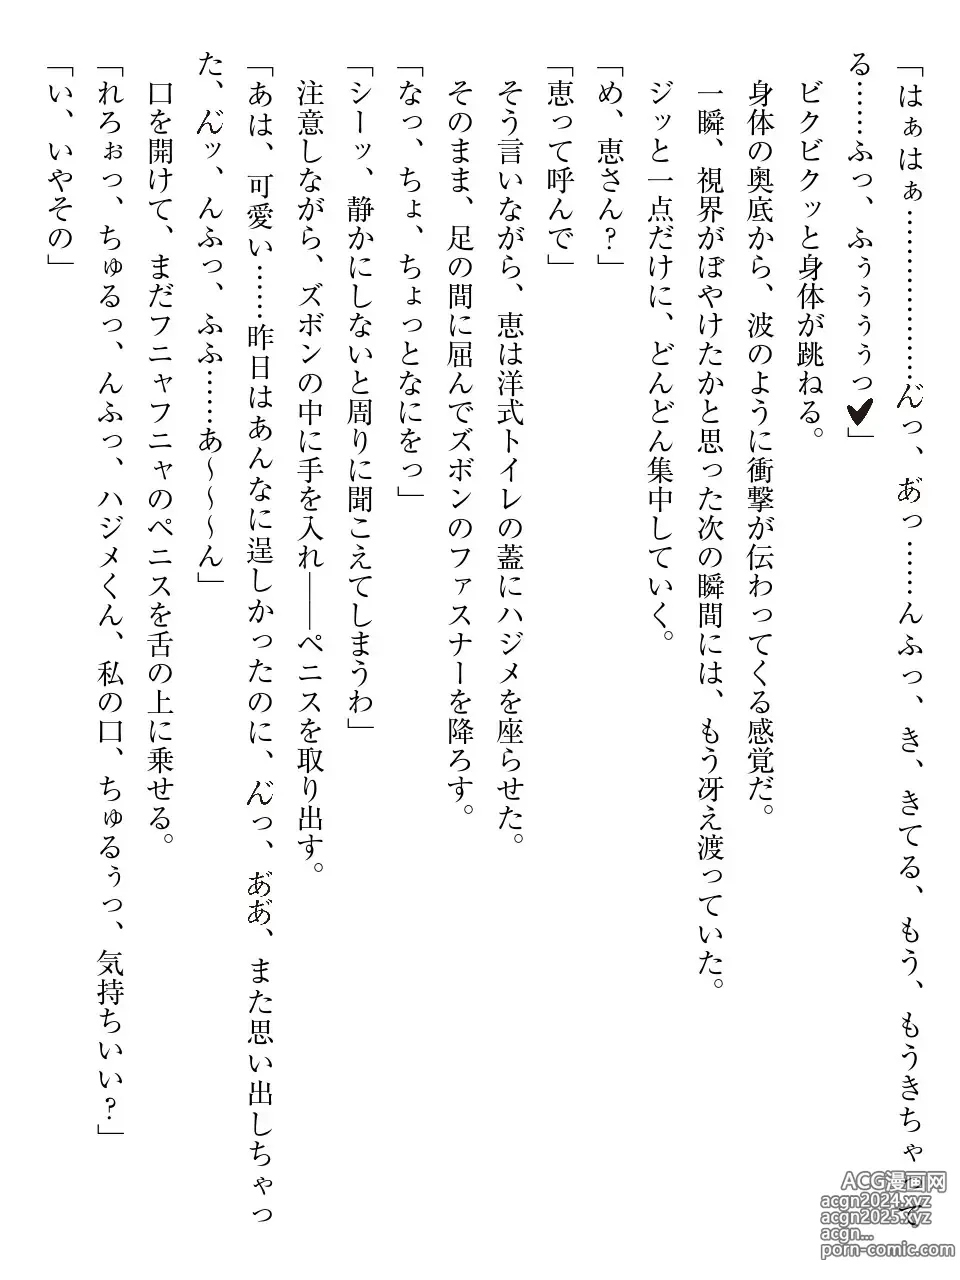 「はぁはぁ………………ん゛っ、あ゛っ……んふっ、き、きてる、もう、もうきちゃって
る……ふっ、ふぅぅぅっ♥」
ビクビクッと身体が跳ねる。
身体の奥底から、波のように衝撃が伝わってくる感覚だ。
一瞬、視界がぼやけたかと思った次の瞬間には、もう冴え渡っていた。
ジッと一点だけに、どんどん集中していく。
「め、恵さん?」
「恵って呼んで」
そう言いながら、恵は洋式トイレの蓋にハジメを座らせた。
そのまま、足の間に屈んでズボンのファスナーを降ろす。
「なっ、ちょ、ちょっとなにをっ」
「シーッ、静かにしないと周りに聞こえてしまうわ」
注意しながら、ズボンの中に手を入れ――ペニスを取り出す。
「あは、可愛い……昨日はあんなに逞しかったのに、ん゛っ、あ゛あ゛、また思い出しちゃっ
た、ん゛ッ、んふっ、ふふ……あ～～～ん」
口を開けて、まだフニャフニャのペニスを舌の上に乗せる。
「れろぉっ、ちゅるっ、んふっ、ハジメくん、私の口、ちゅるぅっ、気持ちいい?」
「い、いやその」
ACG漫画网
acgn2024.xyz
acgn2025.xyz
acgn...
porn-comic.com